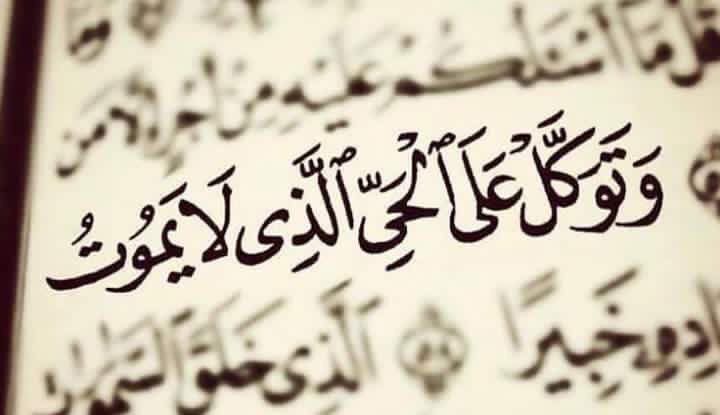 قُلْ مَآ أَسْـَٔلُكُمْ عَلَيْهِ مِنْ أَجْرٍ إِلَّا مَن
وَتَوَكَّلْ عَلَى ٱلْحَىِّ ٱلَّذِى لَا يَمُوتُ
خَبِيرًا ٱلَّذِى خَلَقَ ٱلسَّمَٰوَٰتِ